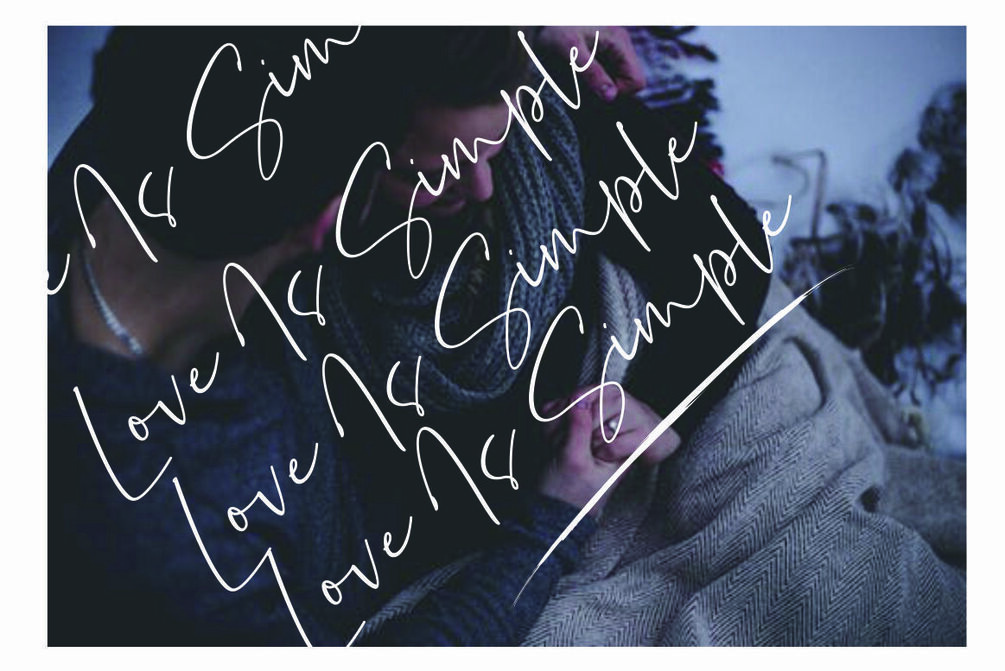 e Is Sim
Love Is Simple
Love Is Simple
Love Is Simple